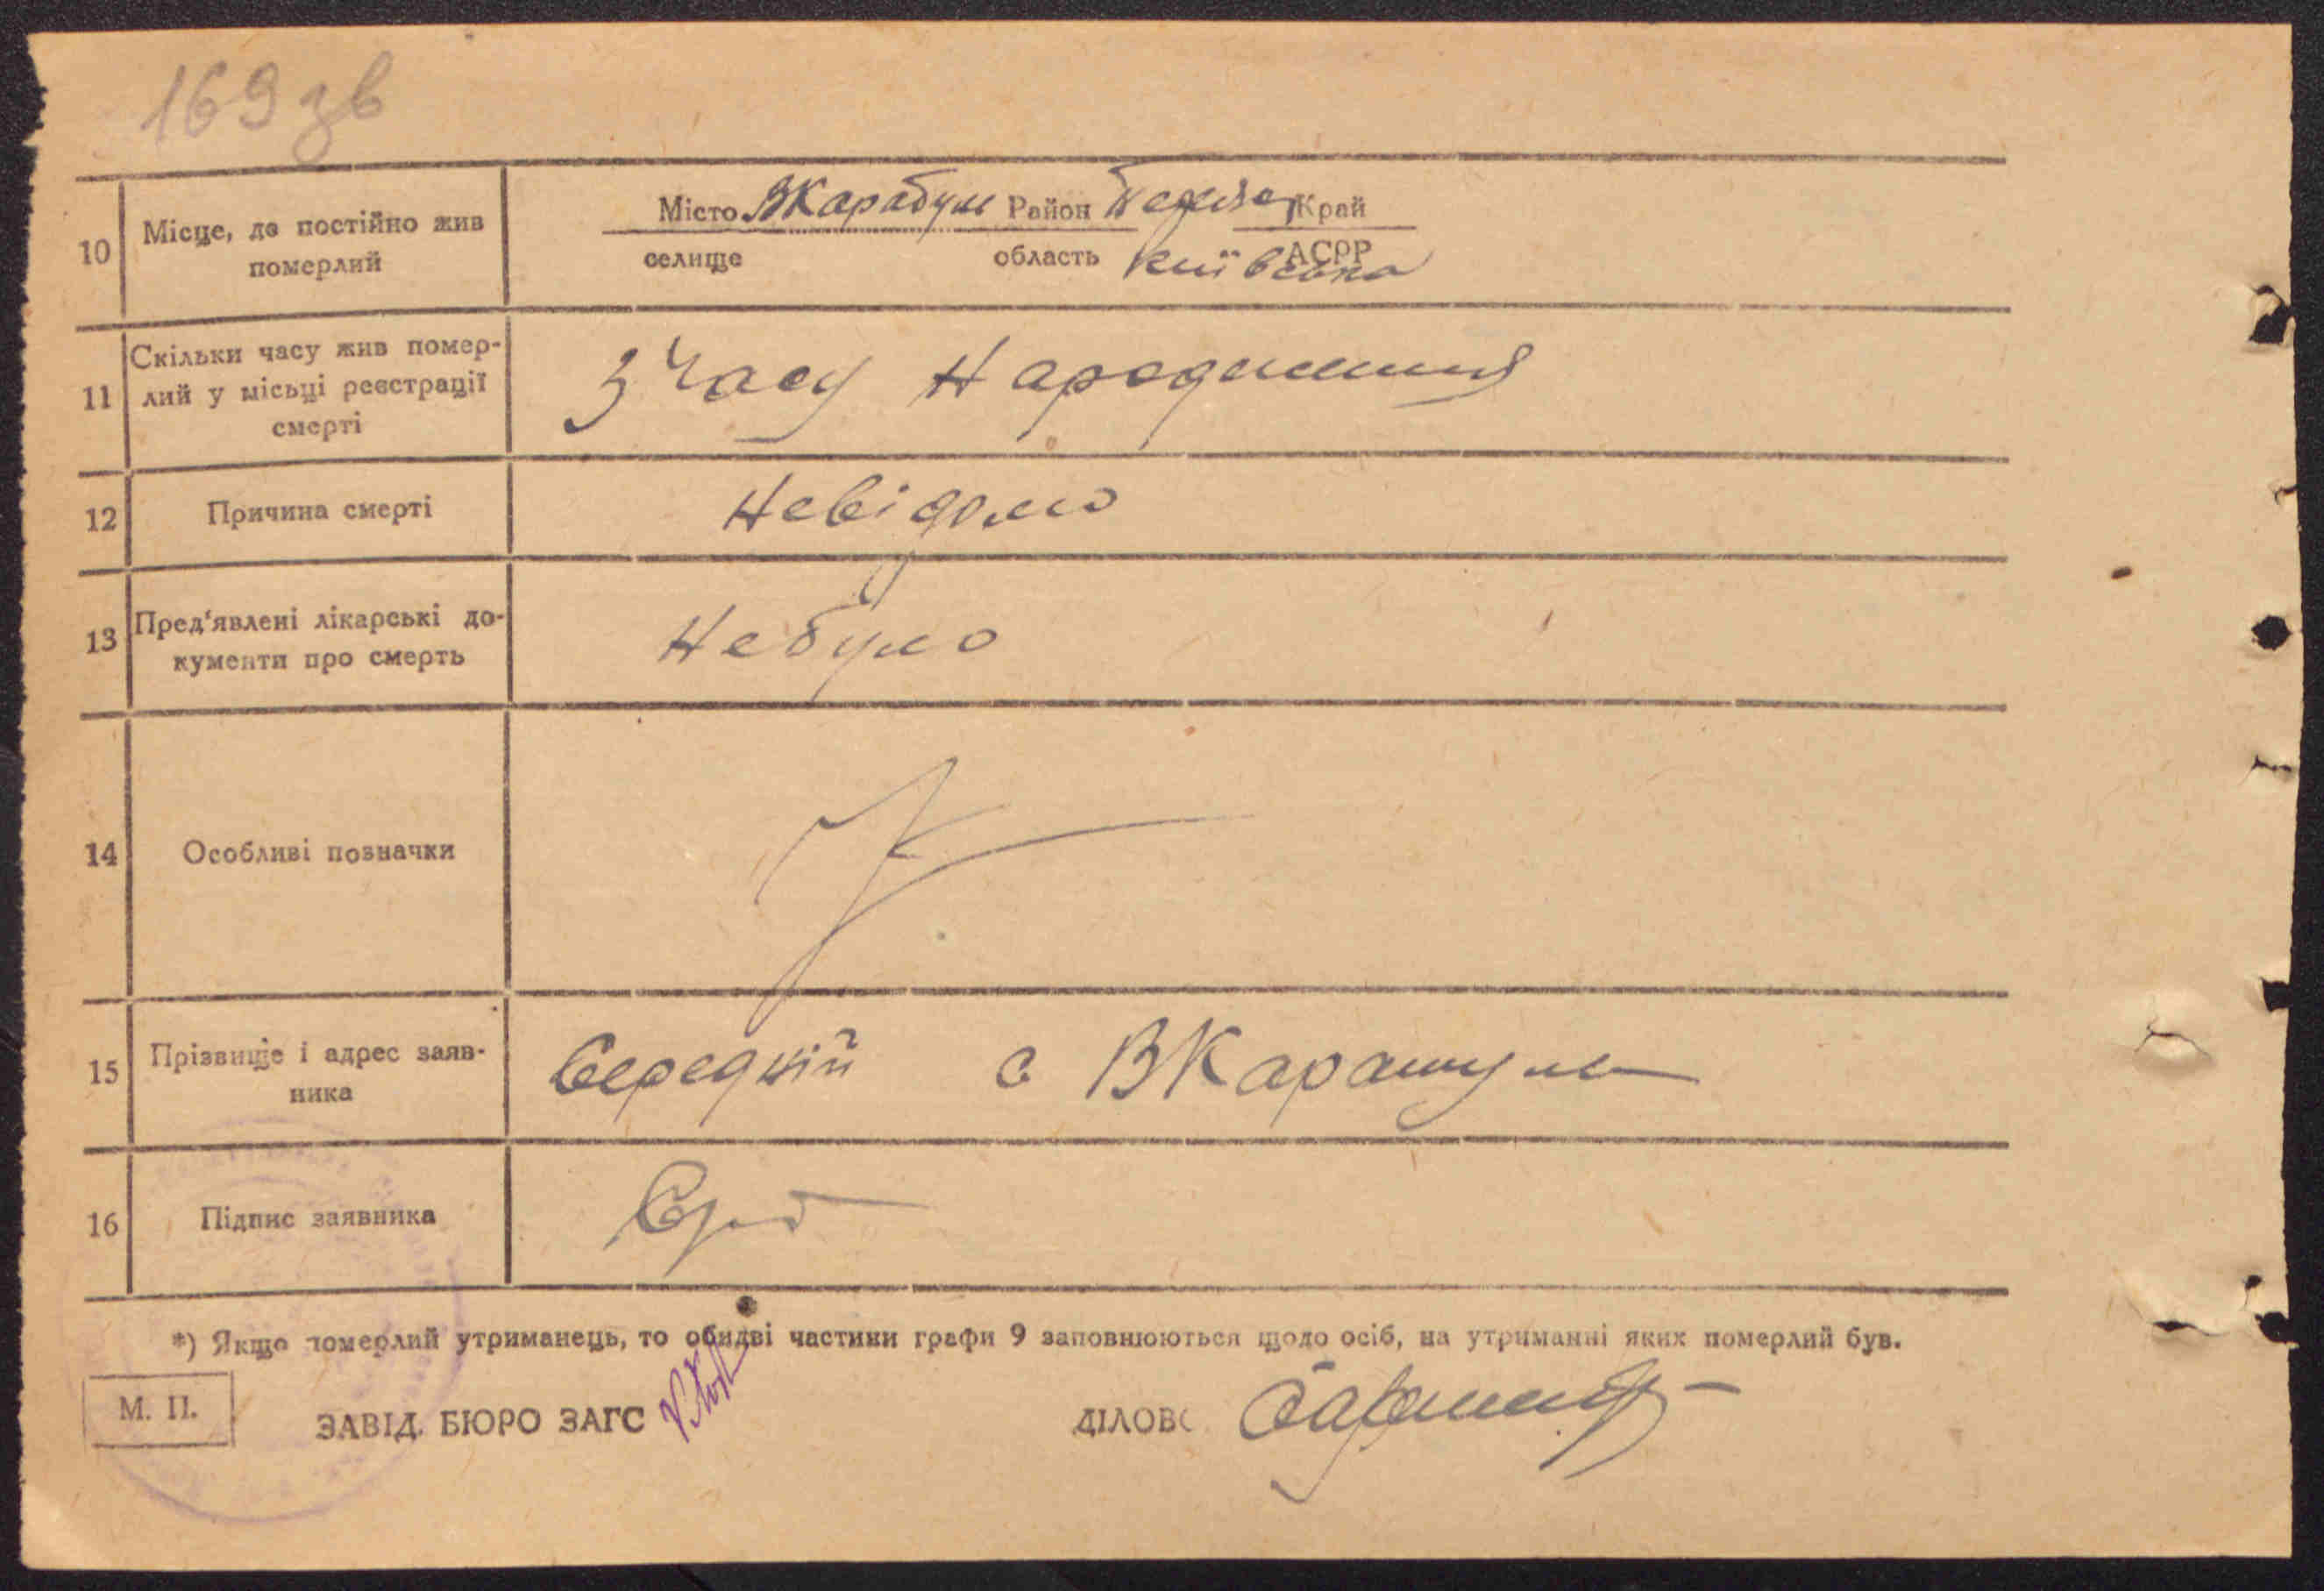 169 зв
10 Місце, де постійно жив померлий
Місто ВКаратул Район Край
селище область Київська АСРР
11 Скільки часу жив помер-
лий у місьці реєстрації
смерті
З Часу Народження
12 Причина смерті Невідомо
13 Пред'явлені лікарські до-
кументи про смерть
Небуло
14 Особливі позначки
15 Прізвище і адрес заяв-
ника
Середній с ВКаратул
16 Підпис заявника
*) Якщо померлий утриманець, то обидві частини графи 9 заповнюються щодо осіб, на утриманні яких померлий був.
М. П.
ЗАВІД. БЮРО ЗАГС ДІЛОВ